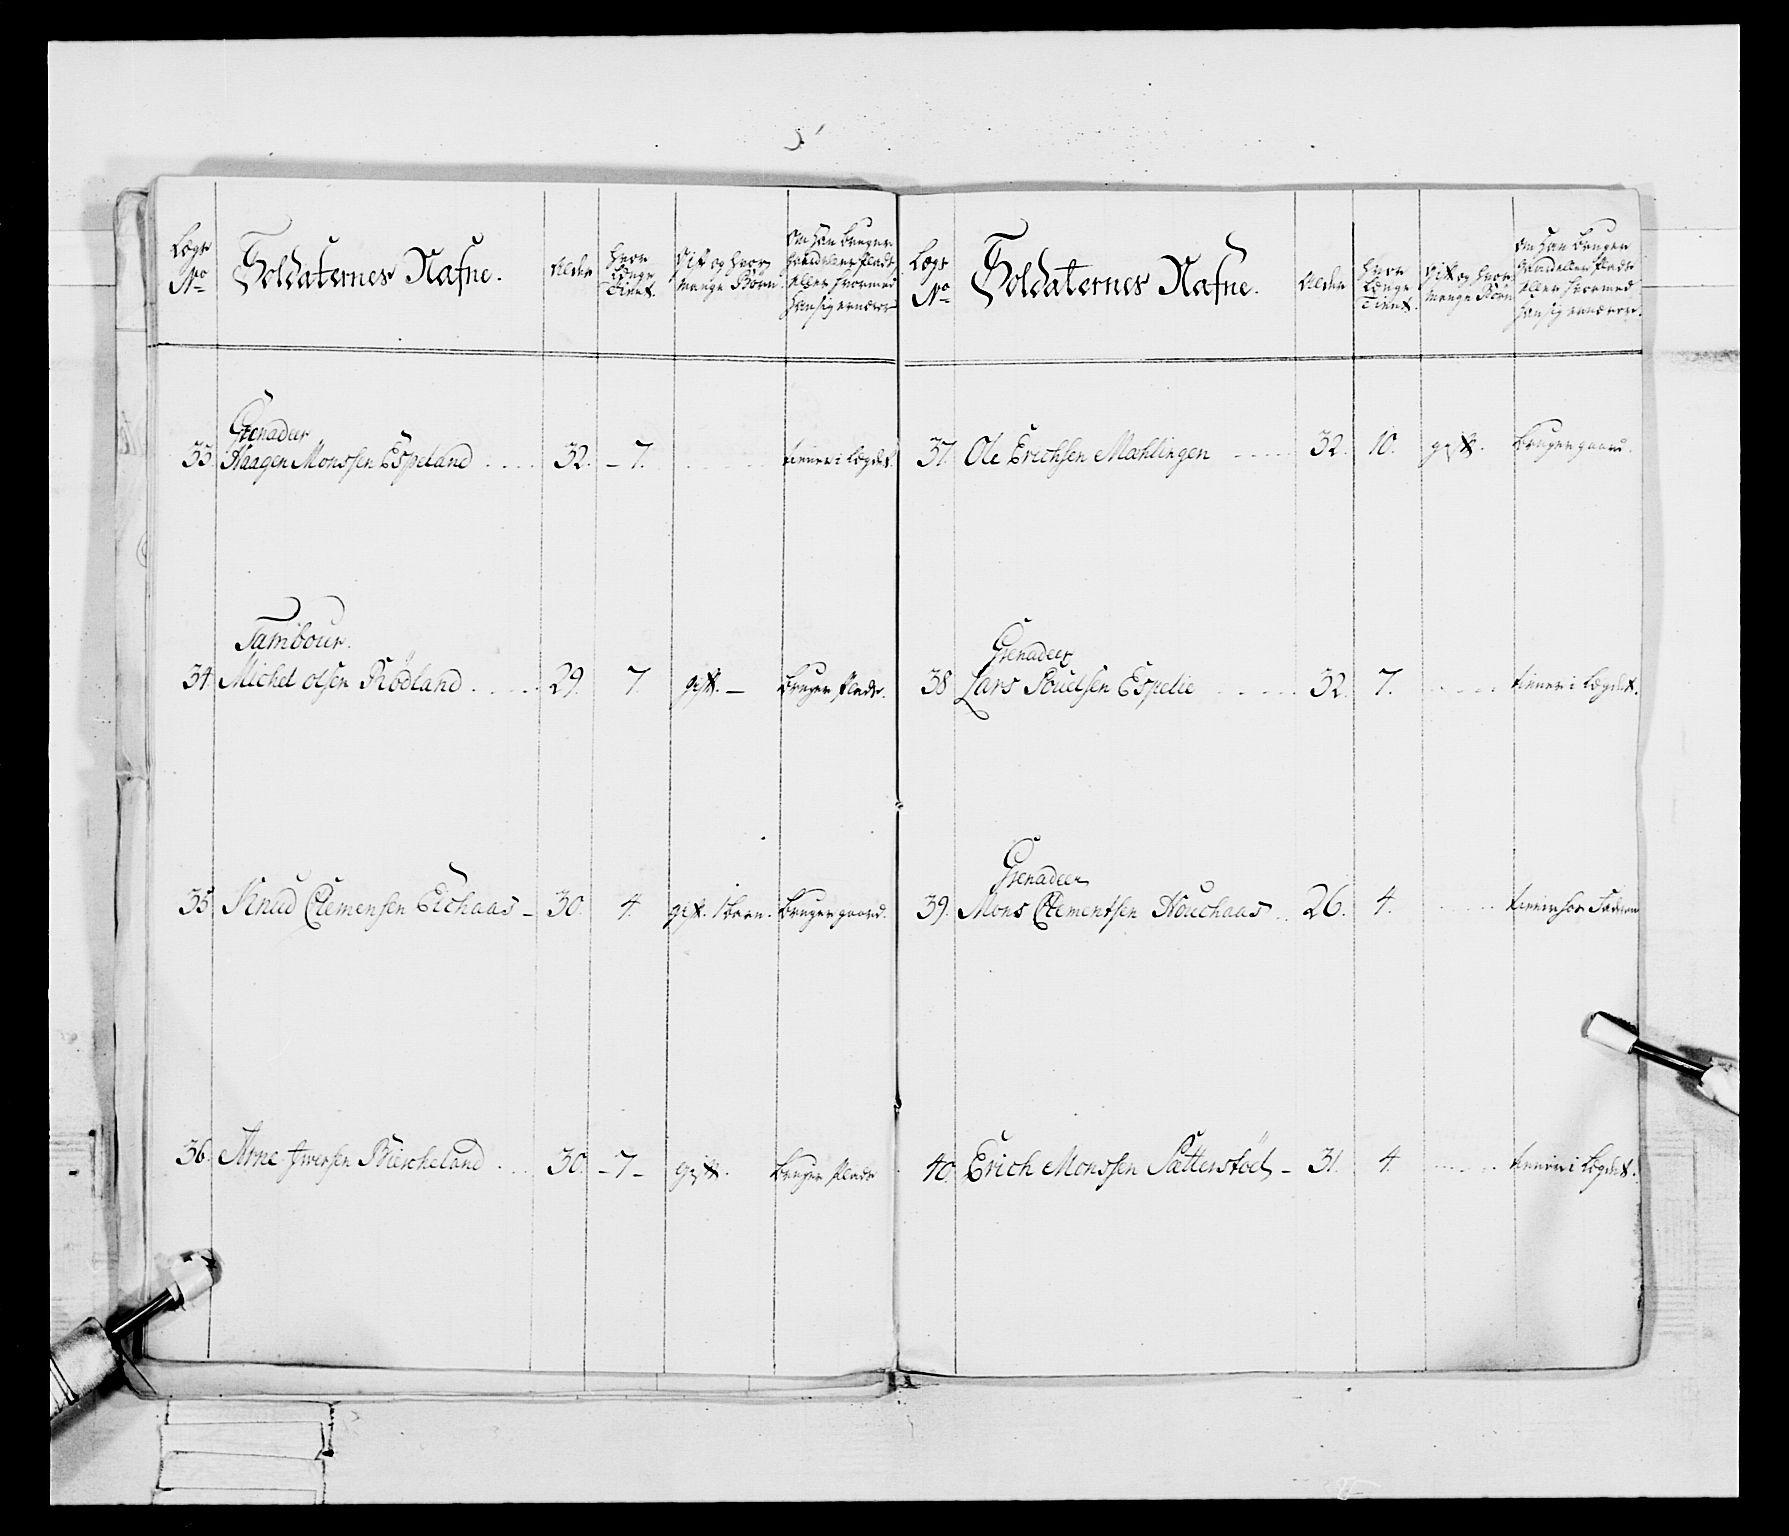 Lægs No
Soldaternes Nafne.
Alder
hvor Længe Tient.
Gift og hvor Mange Børn
Om Han bruger Gaard eller Plads eller hvormed han sig ernærer
Grenadeer
33. Haagen Monssen Espeland . . . . 32. – 7. tiener i Lægdet.
Tambour.
34 Michel olsen Rödland . . . . . 29. 7. gift. – bruger Plads.
35 Knud Clemensen Echaas – 30. 4. gift. 1 barn. bruger gaard.
36. Arne Iwersen Biercheland . . . 30. – 7 – gift. bruger Plads
Lægs No
Soldaternes Nafne.
Alder
hvor Længe Tient.
Gift og hvor Mange Børn
Om Han bruger Gaard eller Plads eller hvormed han sig ernærer.
37. Ole Erichsen Mæhlingen 32. 10. gift. bruger gaard.
Grenadeer
38 Lars Poulsen Espelie 32. 7. tiener i Lægdet.
Grenadeer
39. Mons Clementsen Houchaas 26. 4. tiener hos Faderen
40. Erich Monssen Sætterstöel – 31. 4 tiener i Lægdet.